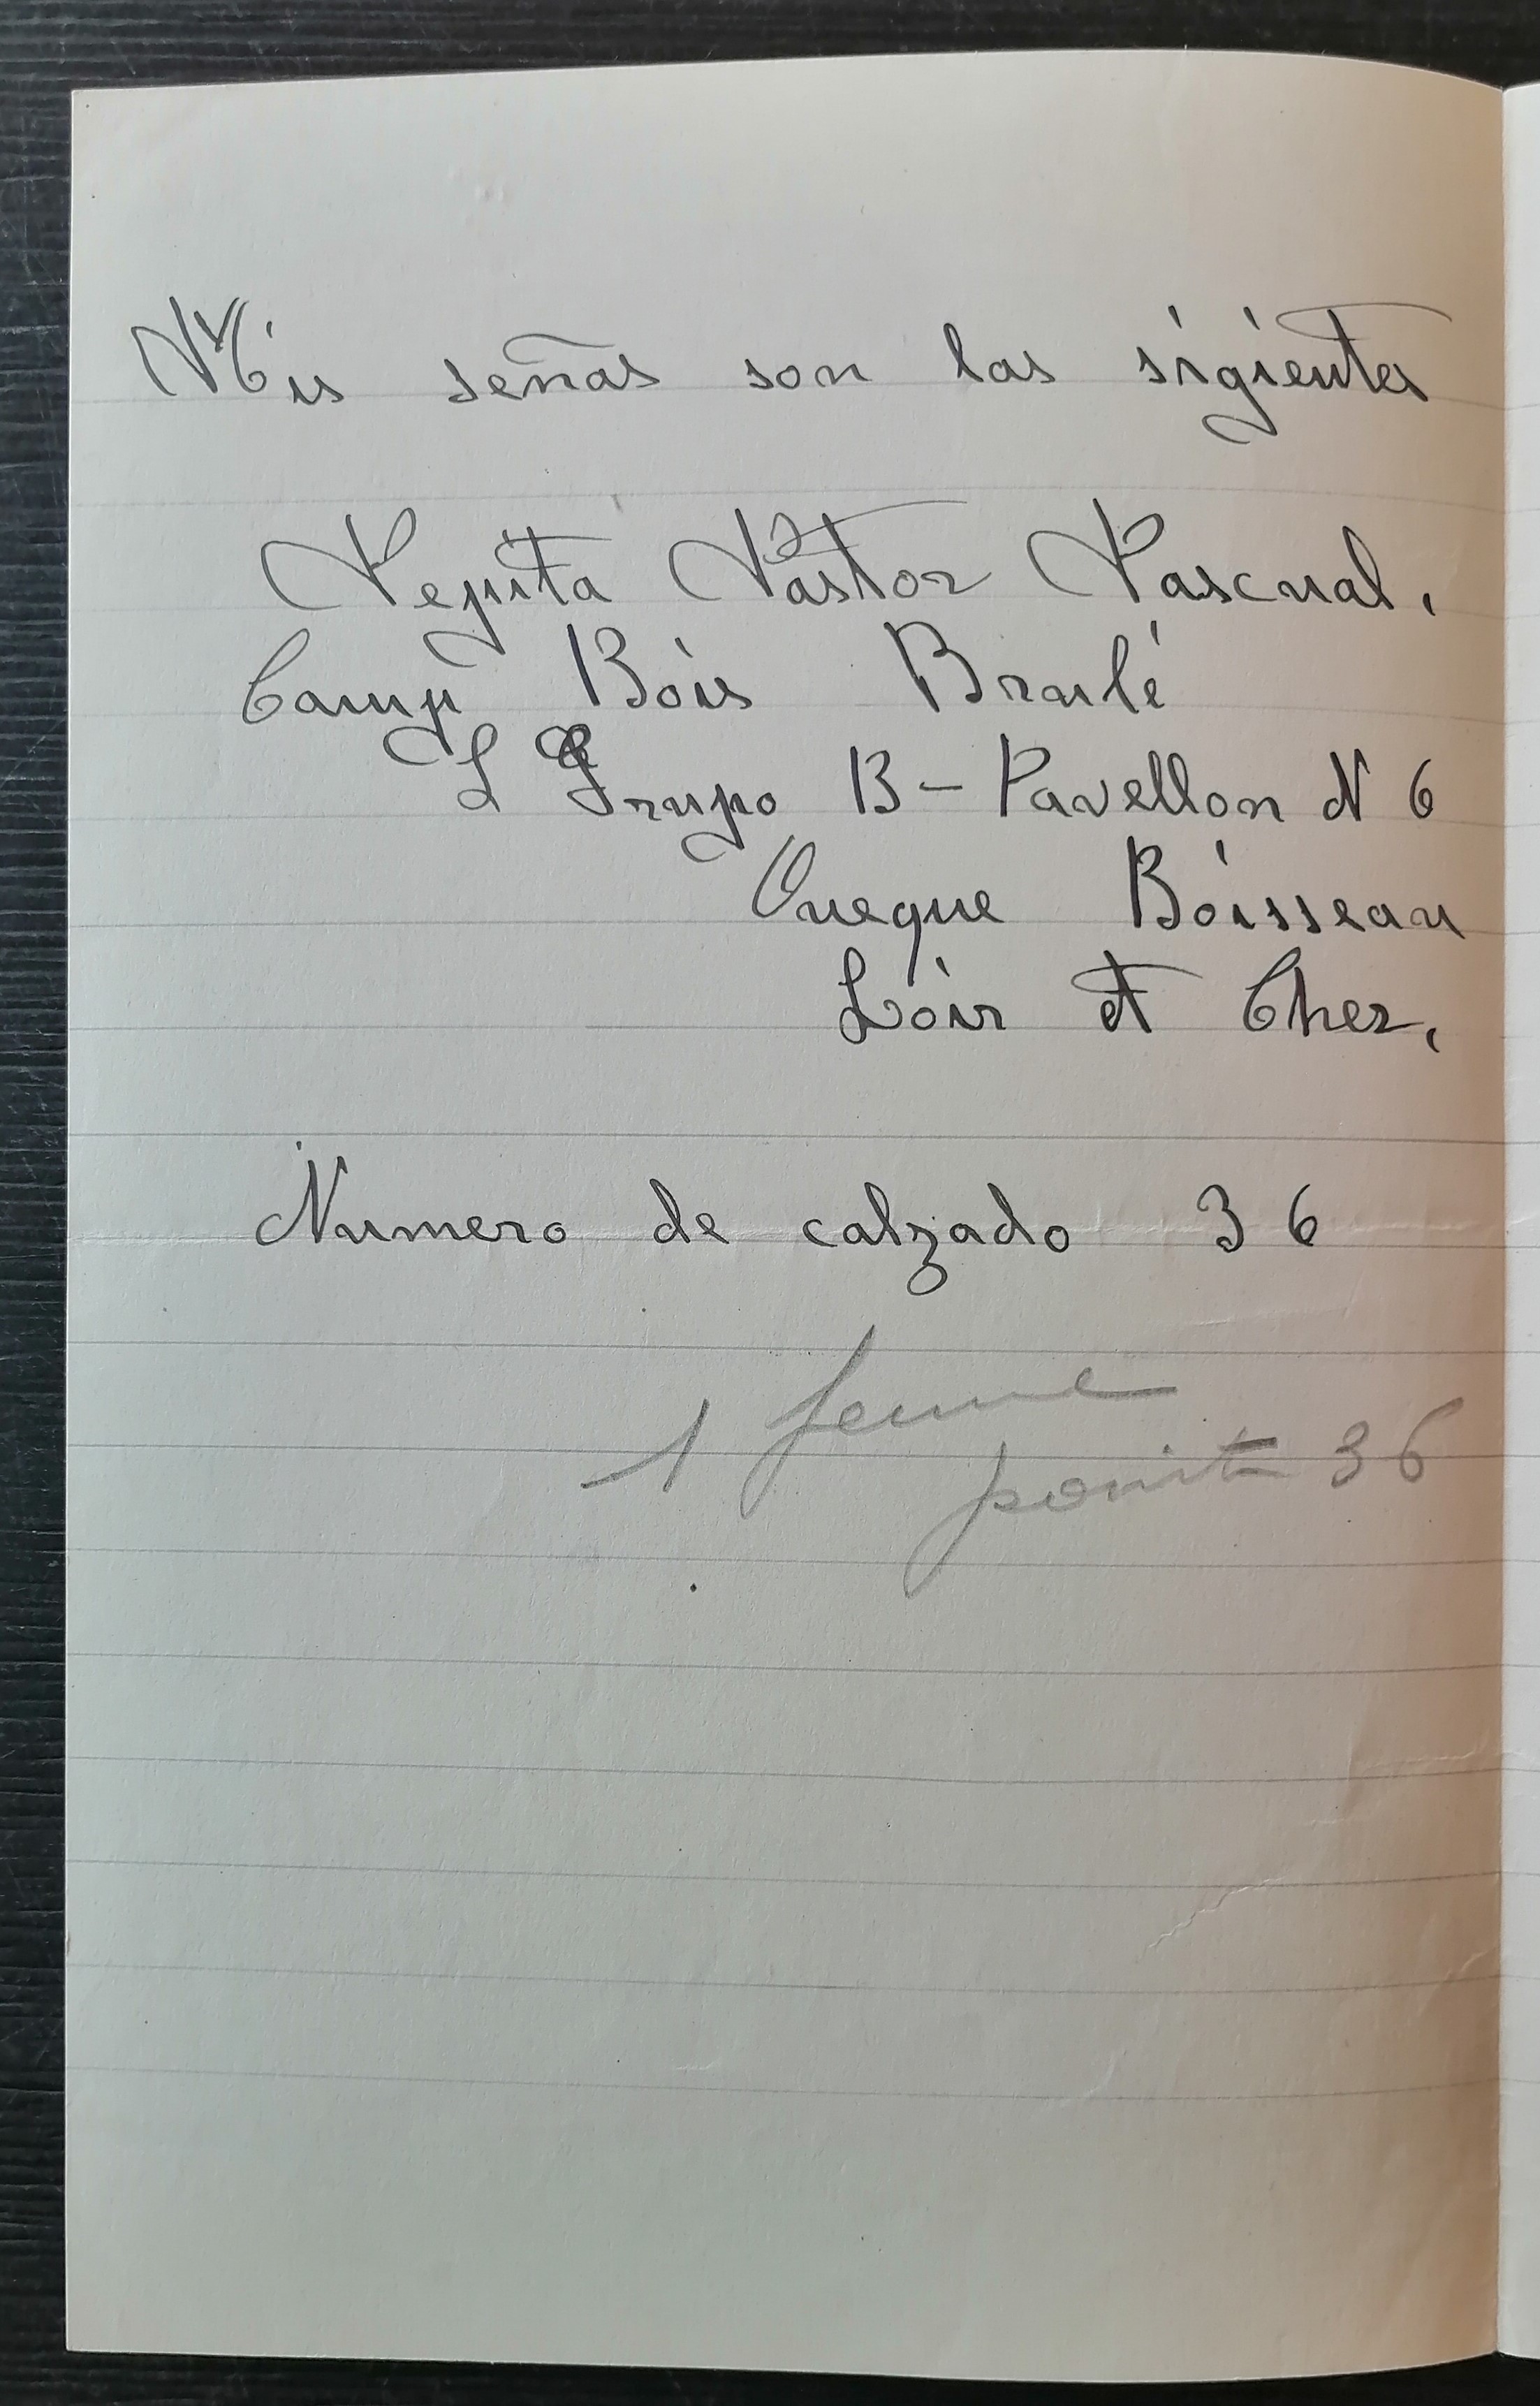 Mis señas son las sigientes
Pepita Pastor Pascual.
Camp Bois Brulé
Grupo B - Pavellon N 6
Queque Boisseau
Loir et Cher.
Numero de calzado 36
1 femme
pointe 36